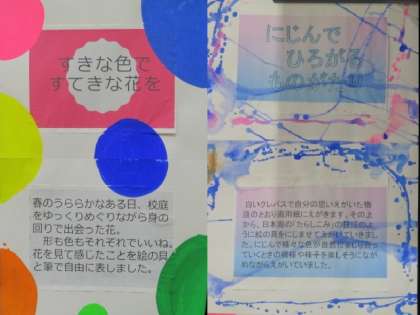 すきな色で
すてきな花を
春のうららかなある日、校庭
をゆっくりめぐりながら身の
回りで出会った花。
形も色もそれぞれでいいね。
花を見て感じたことを絵の具
と筆で自由に表しました。
にじんで
ひろがる
ものがたり
白いクレパスで自分の思いえがいた物
語のとおり画用紙にえがきます。その上
から、日本画の「たらしこみ」の技法のよ
うに絵の具をにじませてえがいていきまし
た。にじんで様々な色が自然にまじり合っ
ていくときの模様や様子を楽しそうになが
めながらえがいていました。